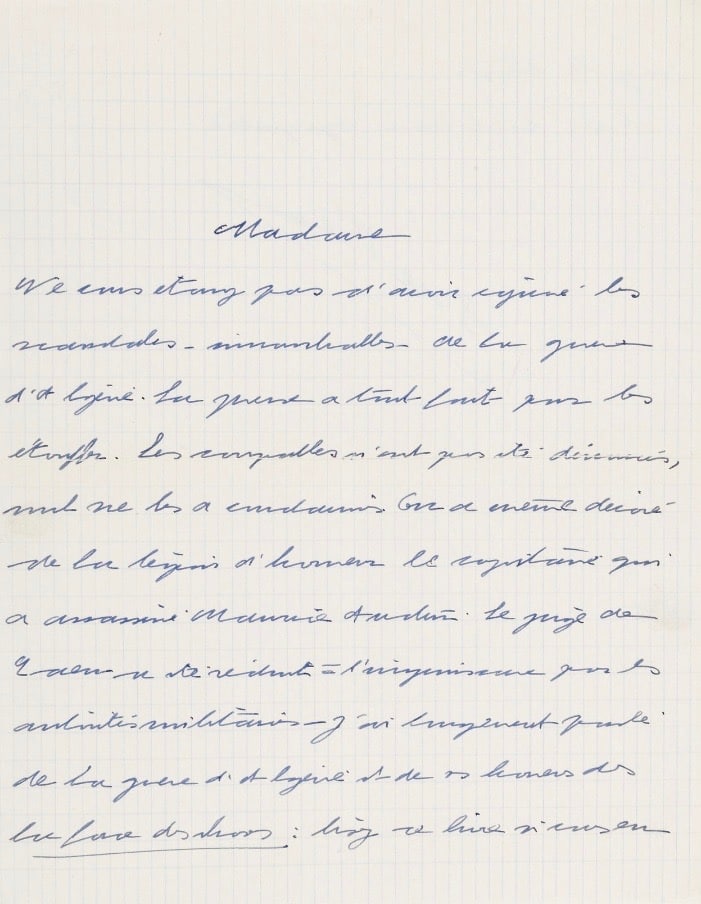 Madame
Ne vous étonnez pas d'avoir ignoré les
scandales – innombrables – de la guerre
d'Algérie. La presse a tout fait pour les
étouffer. Les coupables n'ont pas été dénoncés,
nul ne les a condamnés. On a même décoré
de la légion d'honneur le capitaine qui
a assassiné Maurice Audin. Le juge de
Caen a été réduit à l'impuissance par les
autorités militaires – J'ai longuement parlé
de la guerre d'Algérie et de ses horreurs dans
La force des choses : lisez ce livre si vous en